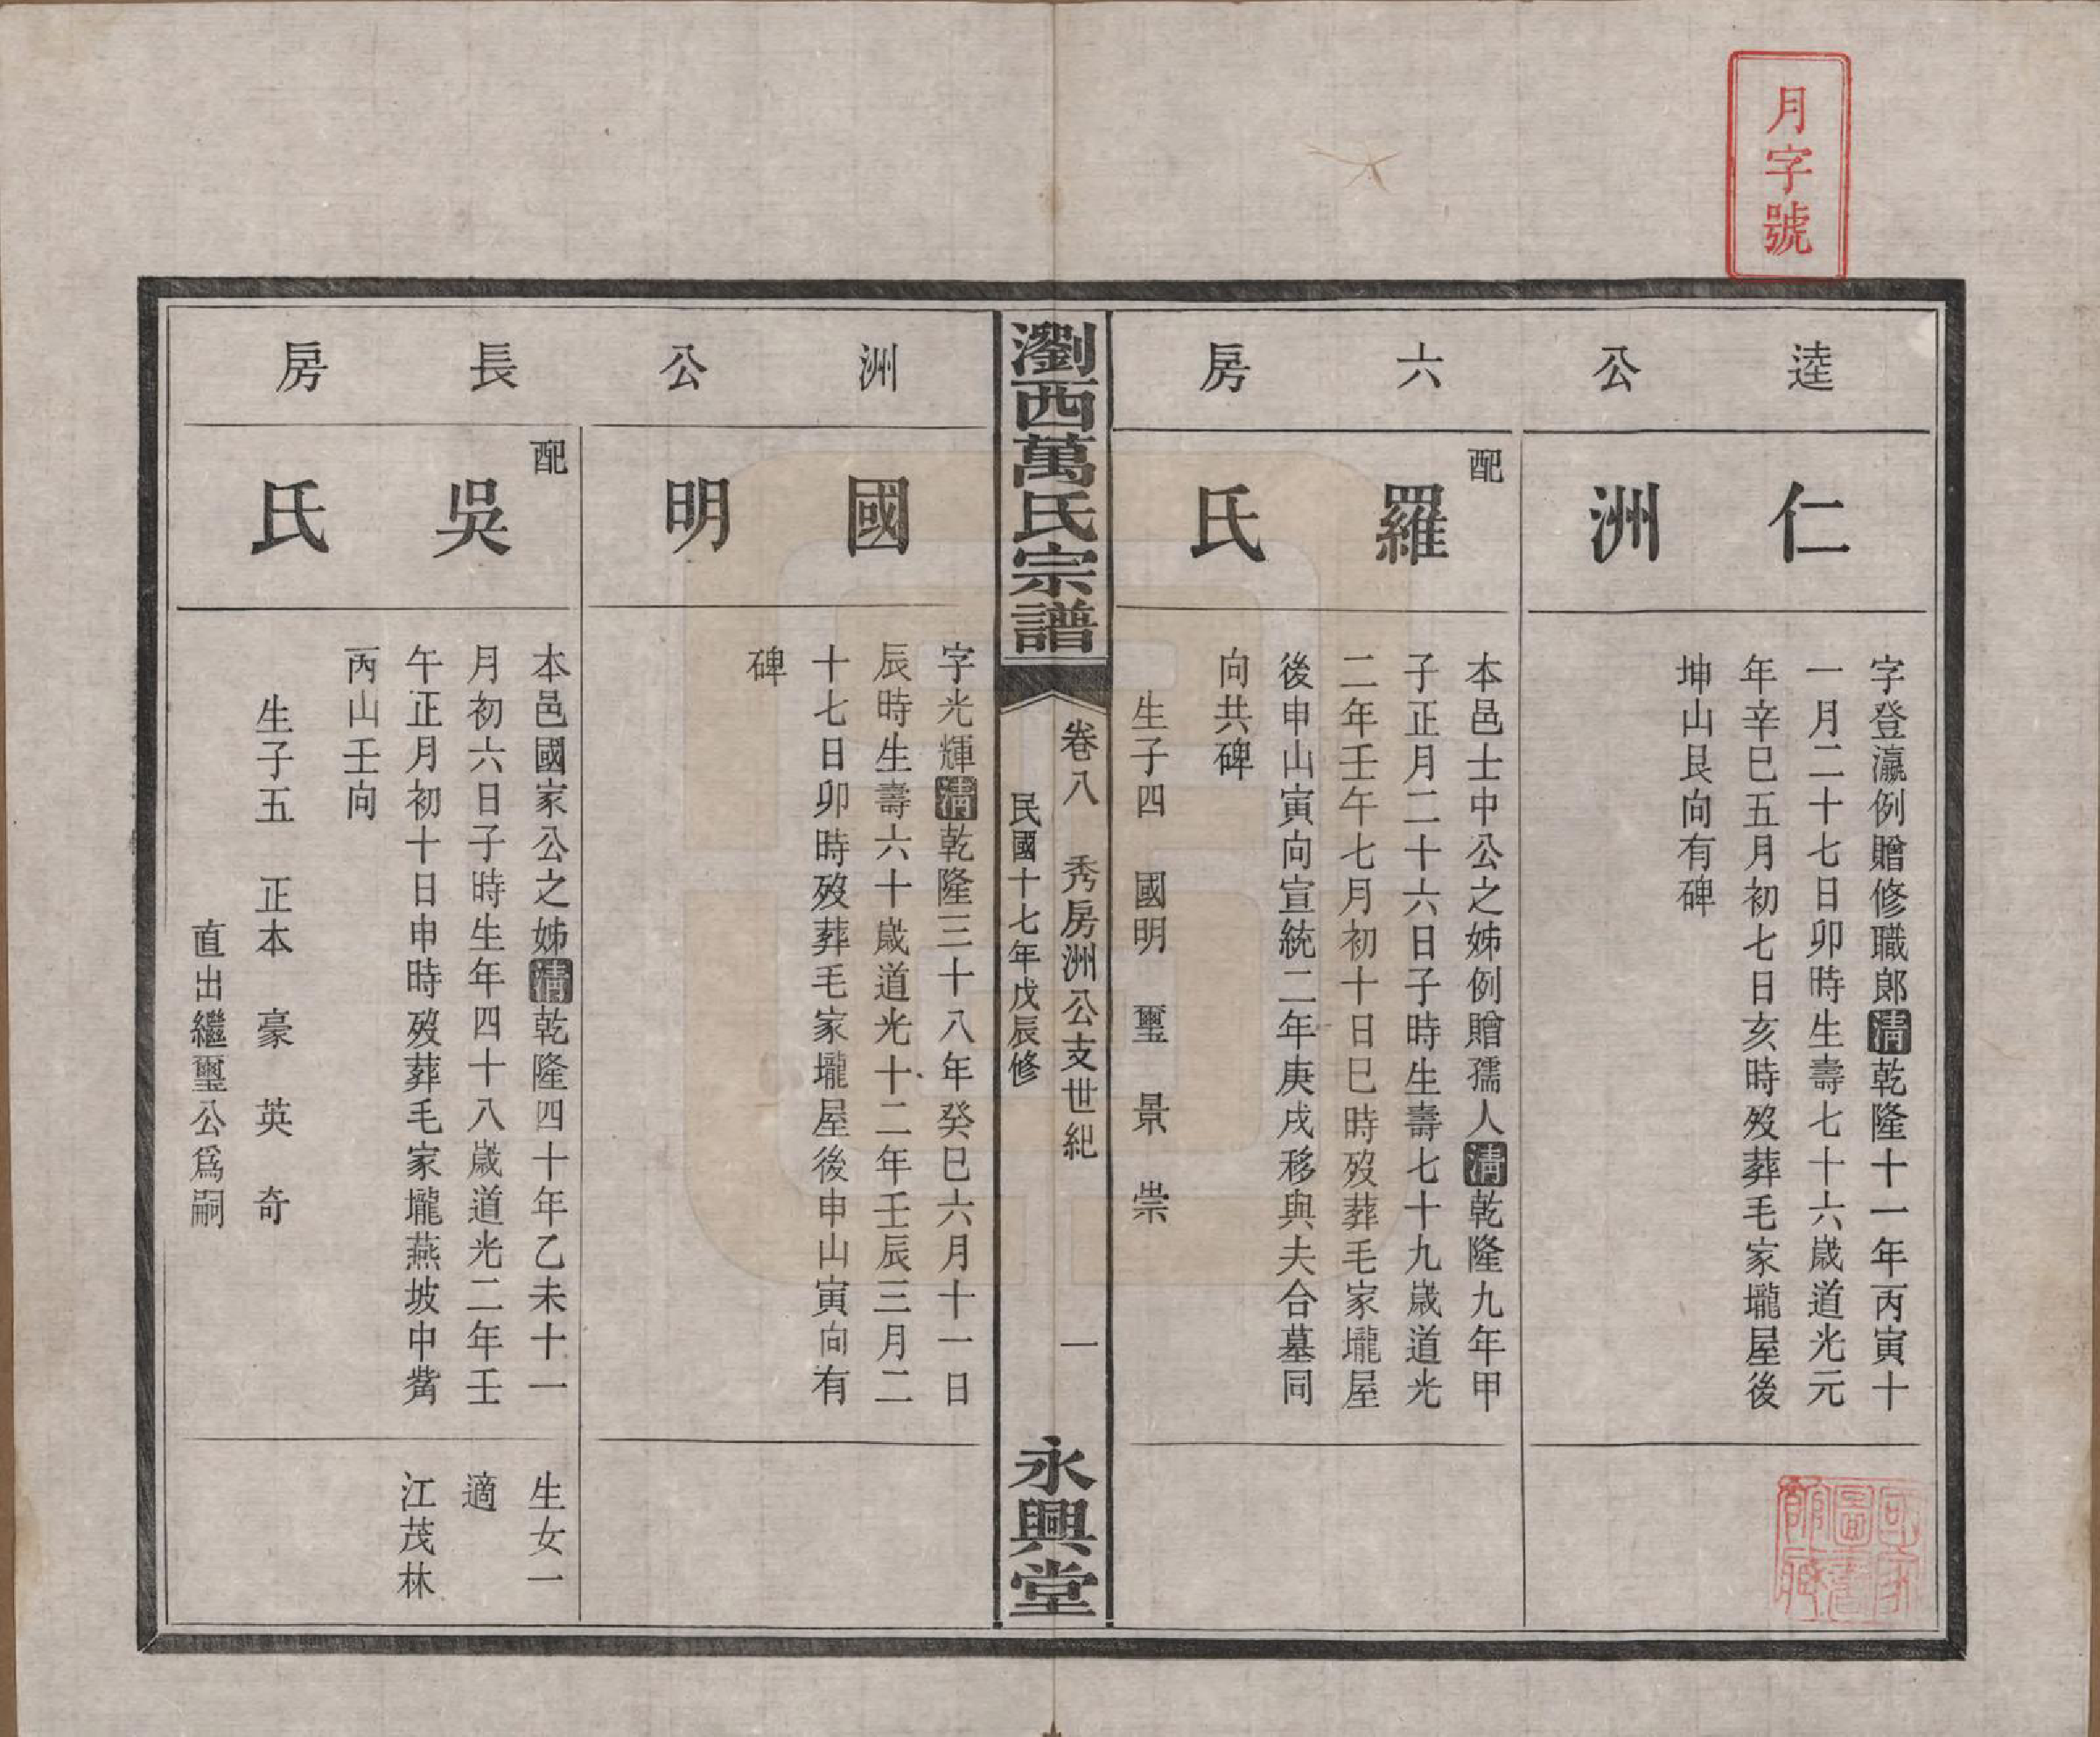 月字號
逵公六房
仁洲
字登瀛例贈修職郎清乾隆十一年丙寅十
一月二十七日卯時生壽七十六歲道光元
年辛巳五月初七日亥時歿葬毛家壠屋後
坤山艮向有碑
配
羅氏
本邑士中公之姊例贈孺人清乾隆九年甲
子正月二十六日子時生壽七十九歲道光
二年壬午七月初十日巳時歿葬毛家壠屋
後申山寅向宣統二年庚戌移與夫合墓同
向共碑
生子四 國明 璽 景 崇
瀏西萬氏宗譜
卷八 秀房洲公支世紀 一
民國十七年戊辰修
永興堂
洲公長房
國明
字光輝清乾隆三十八年癸巳六月十一日
辰時生壽六十歲道光十二年壬辰三月二
十七日卯時歿葬毛家壠屋後申山寅向有
碑
配
吳氏
本邑國家公之姊清乾隆四十年乙未十一
月初六日子時生年四十八歲道光二年壬
午正月初十日申時歿葬毛家壠燕坡中觜
丙山壬向
生子五 正本 豪 英 奇
直出繼璽公爲嗣
生女一
適
江茂林
國家圖書館藏